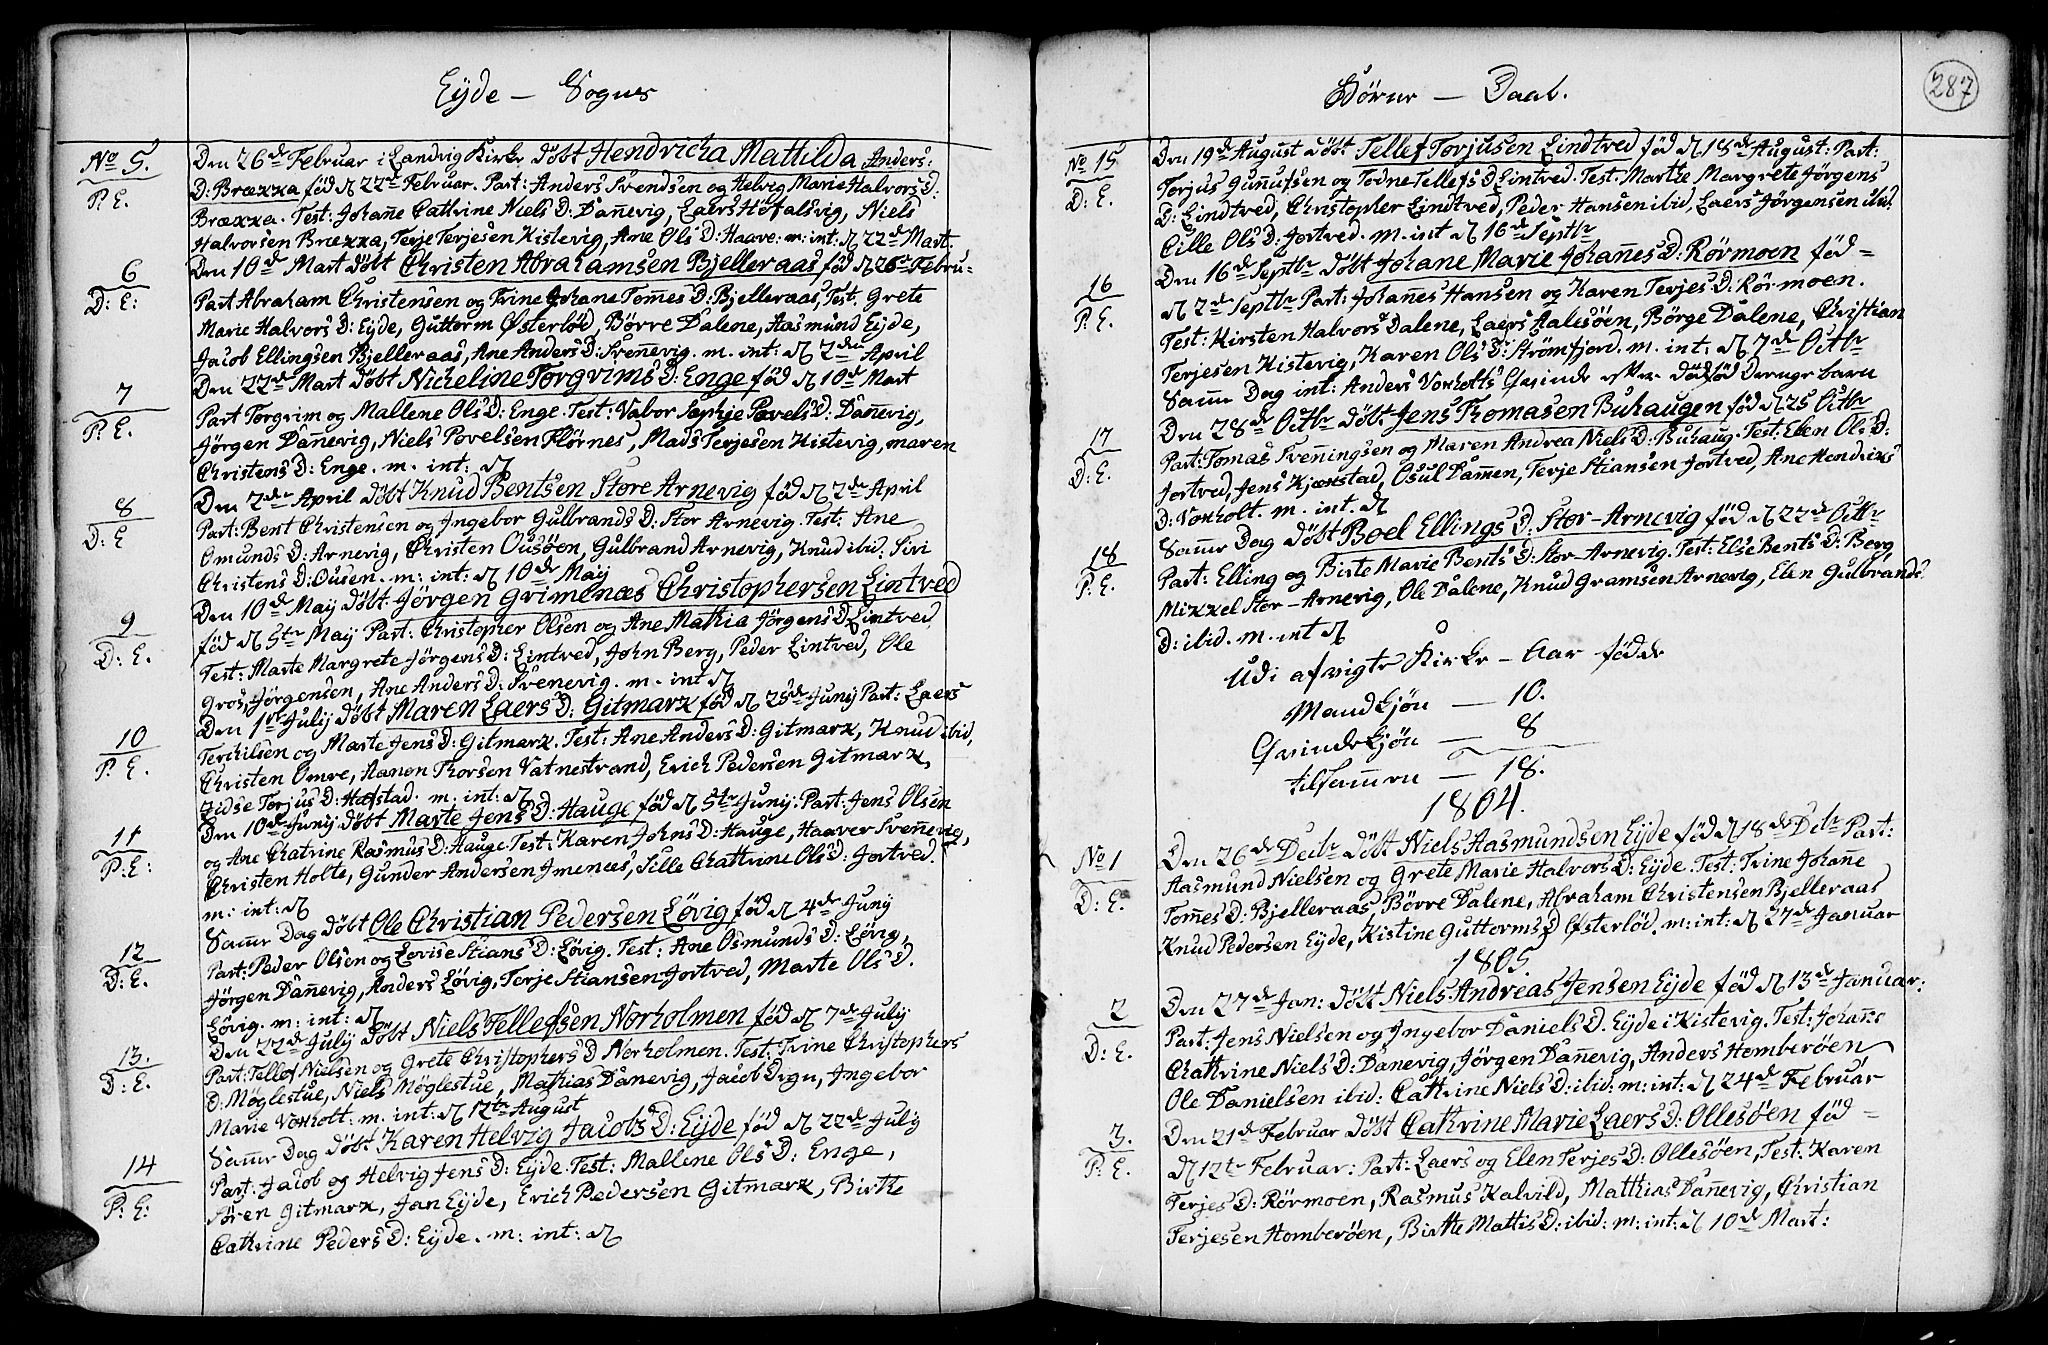 Eyde — Sogns
No 5.
P. E.
Den 26de Februar i Landvig Kirke döbt Hendricha Mattilda Anders:
D: Bræxxa föd d 22de Februar. Part: Anders Svendsen og Helvig Marie Halvors D.
Bræxxa. Test: Johañe Cathrine Niels D: Dañevig, Laers Höfalsvig, Niels
Halvorsen Bræxxa, Terje Terjesen Kistevig, Ane Ols D: Haave: m: int: d 22de Mart.
6
D: E:
Den 10de Mart döbt Christen Abrahamsen Bjelleraas föd d 26de Febru-
Part Abraham Christensen og Trine Johane Tom̃es D: Bjelleraas, Test. Grete
Marie Halvors D: Eyde, Guttorm Österlöd, Börre Dalene, Aasmund Eyde,
Jacob Ellingsen Bjelleraas, Ane Anders D: Sveñevig. m. int: d 2den April
7
P: E.
Den 22de Mart döbt Nicheline Torgrims D: Enge föd d 10de Mart
Part Torgrim og Mallene Ols D: Enge. Test: Vabor Sophje Povels D: Dañevig,
Jörgen Dañevig, Niels Povelsen Flörnes, Mads Terjesen Kistevig, maren
Christens D: Enge. m. int: d
8
D: E
Den 2de April döbt Knud Bentsen Store Arnevig föd d 2de April
Part: Bent Christensen og Ingebor Gulbrands D: Stor Arnevig. Test: Ane
Omunds D: Arnevig, Christen Ousöen, Gulbrand Arnevig, Knud ibid. Siri
Christens D: Ousen. m: int: d 10de May
9
D: E.
Den 10de May döbt Jörgen Grimenæs Christophersen Lintved
föd d 5te May Part: Christopher Olsen og Ane Mathia Jörgens D Lintved.
Test: Marte Margrete Jörgens D: Lintved, John Berg, Peder Lintved, Ole
Gros, Jörgensen, Ane Anders D: Svenevig. m. int d
10
P: E.
Den 1te Julij döbt Maren Laers D: Gitmarx föd d 25de Junij Part: Laers
Terchilsen og Marte Jens D: Gitmarx. Test: Ane Anders D: Gitmarx, Knud ibid,
Christen Omre, Aanon Thorsen Vatnestrand, Erich Pedersen Gitmarx,
Zidse Torjus D: Hafstad. m. int: d
11
P: E:
Den 10de Junij döbt Marte Jens D: Hauge föd d 5te Junij: Part: Jens Olsen
og Ane Chatrine Rasmus D: Hauge. Test: Karen Johns D: Hauge, Haaver Sveñevig,
Christen Holte, Gunder Andersen Imenees, Sille Chattrine Ols D: Jortved.
m: int: d
12
D: E.
Sam̃e Dag döbt Ole Christian Pedersen Lövig föd d 4de Junij
Part: Peder Olsen og Lovise Stians D: Lövig. Test: Ane Osmunds D: Lövig,
Jörgen Dañevig, Anders Lövig, Terje Stiansen Jortved, Marte Ols D.
Lövig. m: int: d
13.
D: E.
Den 22de Julij döbt Niels Tellefsen Norholmen föd d 7de Julij
Part: Tellef Nielsen og Grete Christophers D Norholmen. Test: Trine Christophers
D: Möglestue, Niels Möglestue, Mathias Danevig, Jacob Dign, Ingebor
Marie Voxholt. m. int: d 12te August
14
P: E:
Sam̃e Dag döbt Karen Helvig Jacobs D: Eyde föd d 22de Julij
Part: Jacob og Helvig Jens D: Eyde. Test: Mallene Ols D: Enge,
Sören Gitmarx, Jan Eyde, Erich Pedersen Gitmarx, Birthe
Cathrine Peders D: Eyde. m: int: d
Börne — Daab.
287
No 15.
D: E.
Den 19de August döbt Tellef Torjusen Lindtved föd d 18de August: Part:
Torjus Guñufsen og Todne Tellefs D Lintved. Test: Marthe Margrete Jörgens
D: Lindtved, Christopher Lindtved, Peder Hansen ibid, Laers Jörgensen ibid.
Cille Ols D: Jortved. m. int d 16de Septbr
16
P: E.
Den 16de Septbr döbt Johane Marie Johañes D: Rörmoen föd -
d 2de Septbr Part: Johañes Hansen og Karen Terjes D: Rörmoen.
Test: Kirsten Halvors Dalene, Laers Aalesöen, Börge Dalene, Christian
Terjesen Kistevig, Karen Ols D: Strömfjord. m. int. d 7de Octbr
Sam̃e Dag int: Anders Voxholts Qvinde efter dödföd drenge barn
17
D: E.
Den 28de Octbr döbt Jens Thomasen Buhaugen föd d 25 Octbr
Part: Tomas Sveñingsen og Maren Andrea Niels D: Buhaug. Test: Elen Ols D:
Jortved, Jens Kjæxstad, Osul Dam̃en, Terje Stiansen Jortved, Ane Hendrixs
D: Voxholt. m. int. d
18
P: E.
Sam̃e Dag döbt Boel Ellings D: Stor-Arnevig föd d 22de Octbr
Part: Elling og Birte Marie Bents D: Stor-Arnevig. Test: Else Bents D: Berg,
Mixxel Stor-Arnevig, Ole Dalene, Knud Gramsen Arnevig, Elen Gulbrands
D: ibid. m. int d
Udi afvigte Kirke-Aar födde
Mandkjön — 10.
Qvindekjön — 8
tilsam̃en — 18.
1804.
No 1
D: E.
Den 26de Decbr döbt Niels Aasmundsen Eyde föd d 18de Decbr Part:
Aasmund Nielsen og Grete Marie Halvors D: Eyde. Test: Trine Johañe
Tom̃es D: Bjelleraas, Börre Dalene, Abraham Christensen Bjelleraas
Knud Pedersen Eyde, Kistine Guttorms D Österlöd. m: int: d 27de Januar
1805
2
D: E.
Den 27de Jan: döbt Niels Andreas Jensen Eyde föd d 13de Januar:
Part: Jens Nielsen og Ingebor Daniels D. Eyde i Kistevig. Test: Johañe
Chathrine Niels D: Danevig, Jörgen Dañevig, Anders Homberöen
Ole Danielsen ibid: Cathrine Niels D: ibid: m: int: d 24de Februar
3.
P: E.
Den 21de Februar döbt Cathrine Marie Laers D: Ollesöen föd -
d 12te Februar: Part: Laers og Elen Terjes D: Ollesöen, Test: Karen
Terjes D: Rörmoen, Rasmus Kalvild, Matthias Dañevig, Christian
Terjesen Homberöen, Birthe Mattis D: ibid: m: int: d 10de Mart: